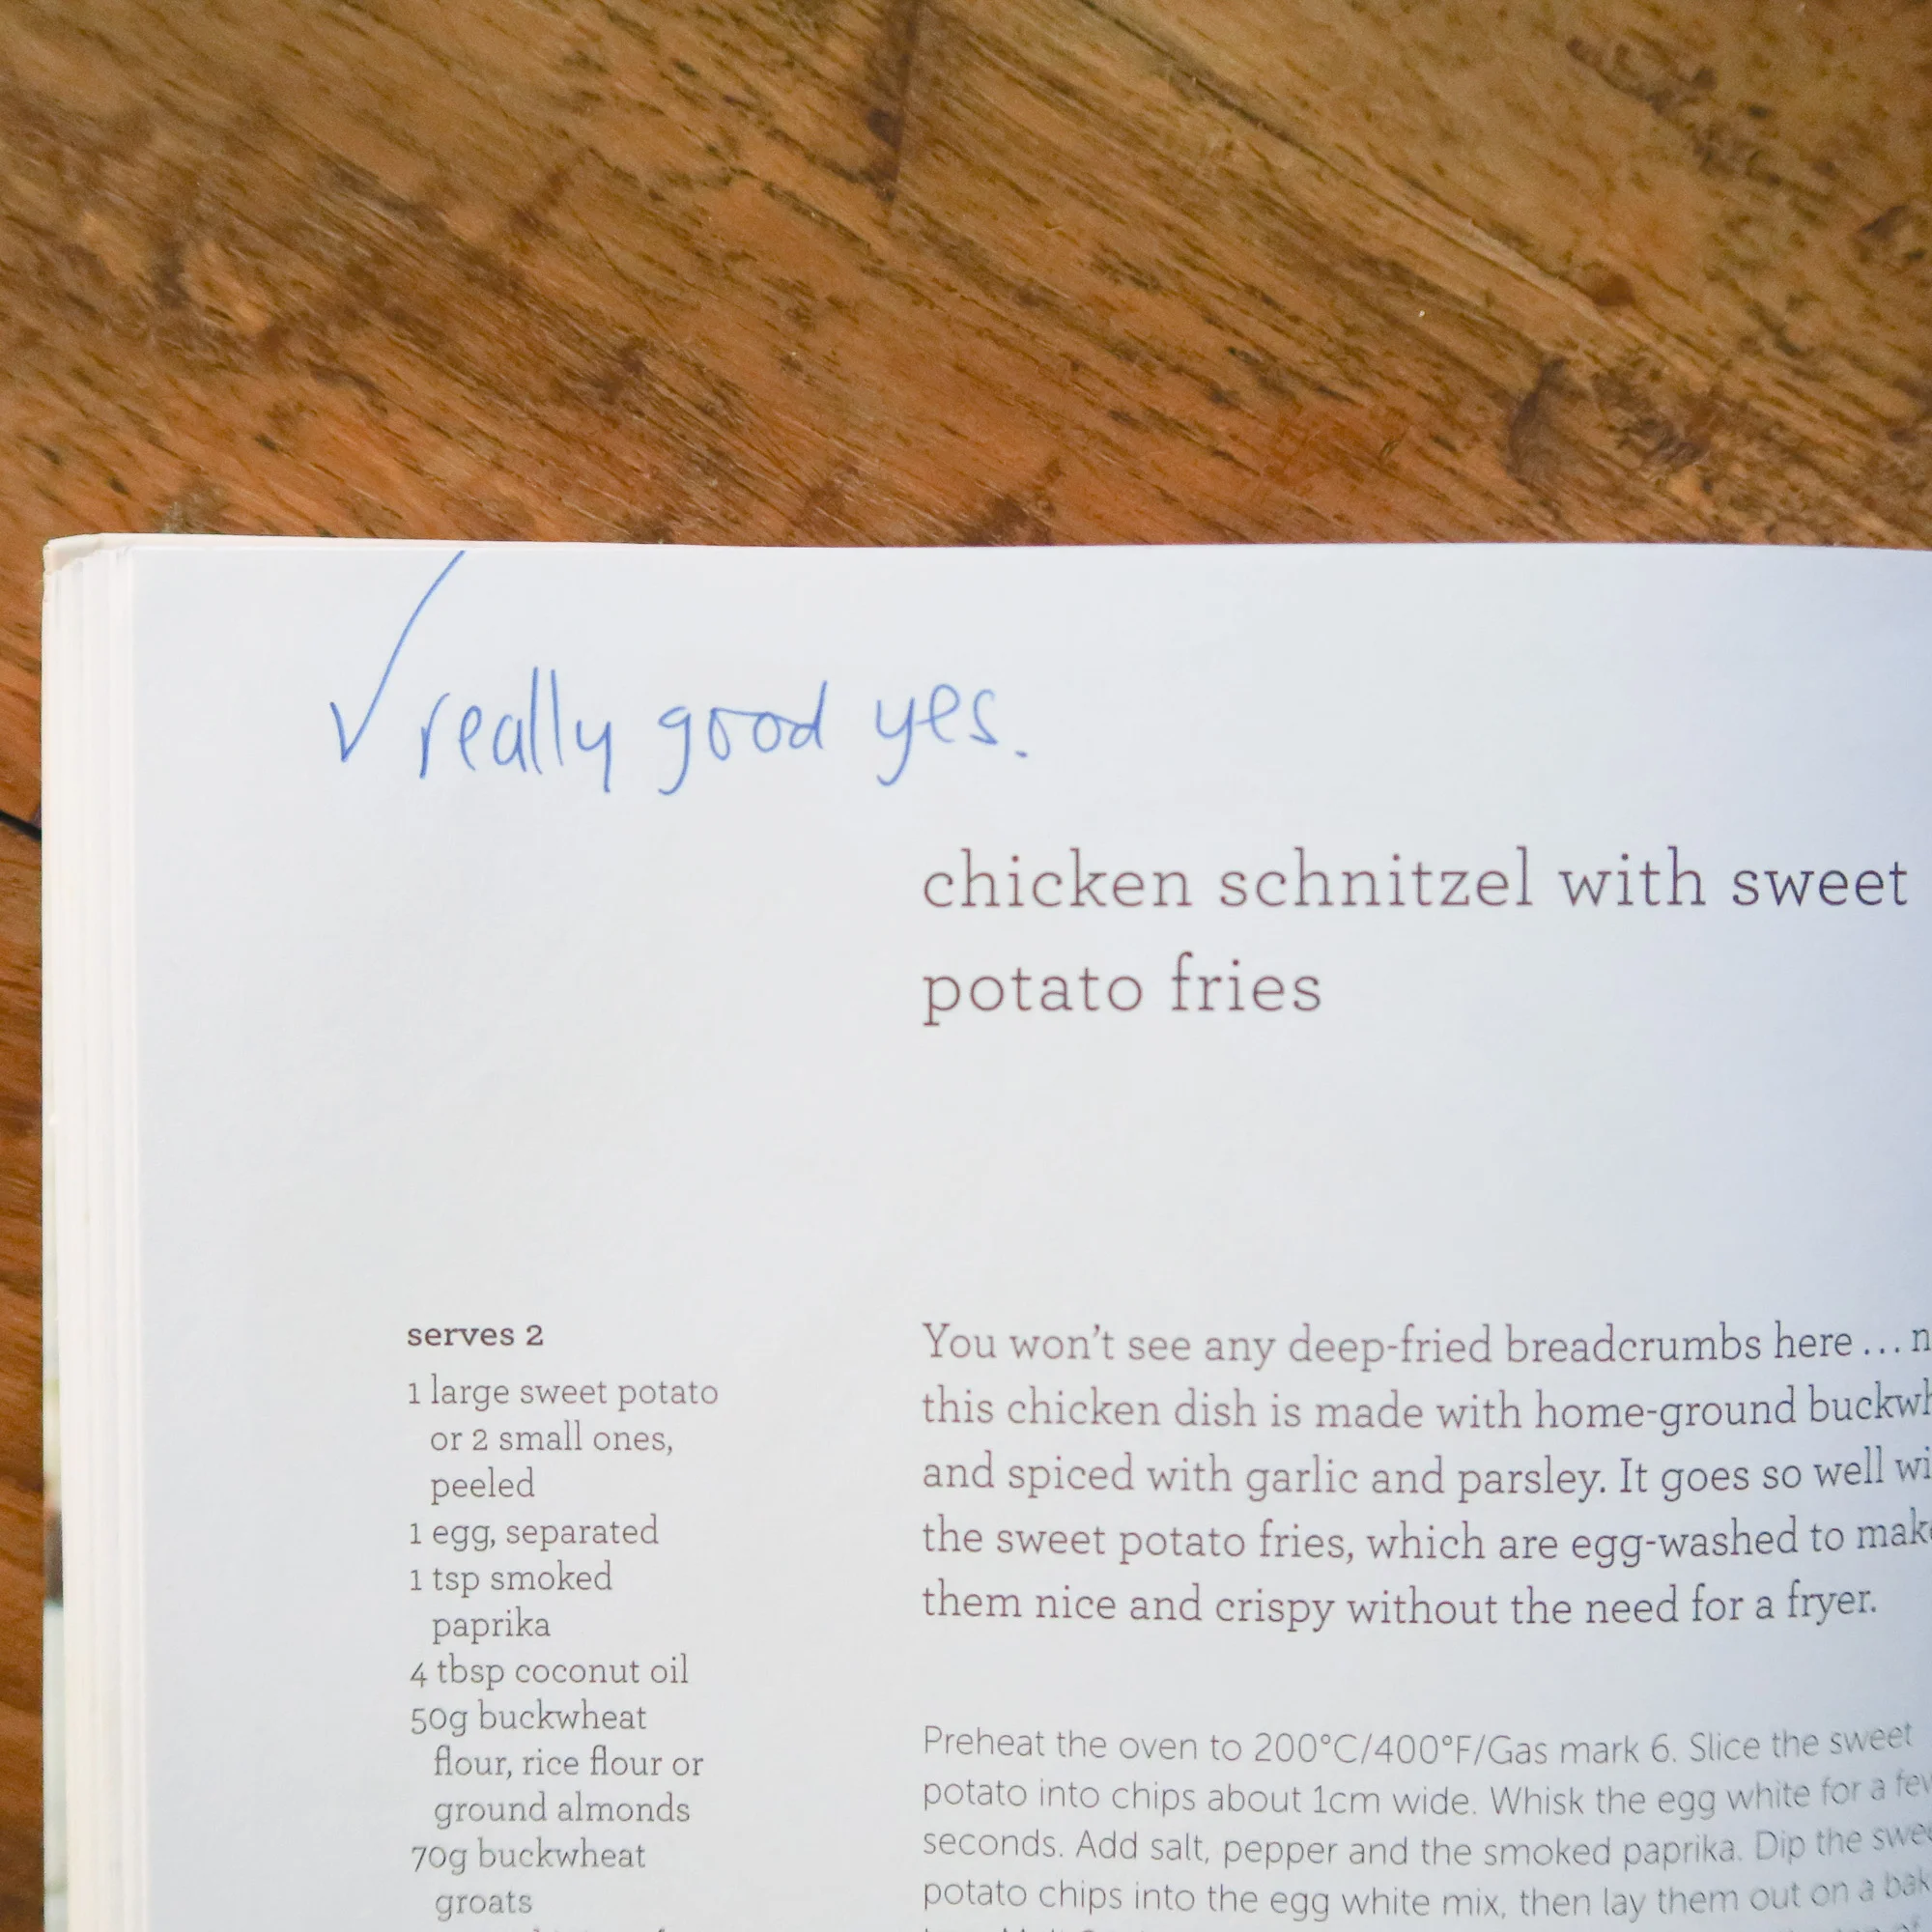 ✓ really good yes.
chicken schnitzel with sweet
potato fries
serves 2
1 large sweet potato
or 2 small ones,
peeled
1 egg, separated
1 tsp smoked
paprika
4 tbsp coconut oil
50g buckwheat
flour, rice flour or
ground almonds
70g buckwheat
groats
You won't see any deep-fried breadcrumbs here ...
this chicken dish is made with home-ground
and spiced with garlic and parsley. It goes so well
the sweet potato fries, which are egg-washed to
them nice and crispy without the need for a fryer.
Preheat the oven to 200°C/400°F/Gas mark 6. Slice the sweet
potato into chips about 1cm wide. Whisk the egg white for a
seconds. Add salt, pepper and the smoked paprika. Dip the
potato chips into the egg white mix, then lay them out on a